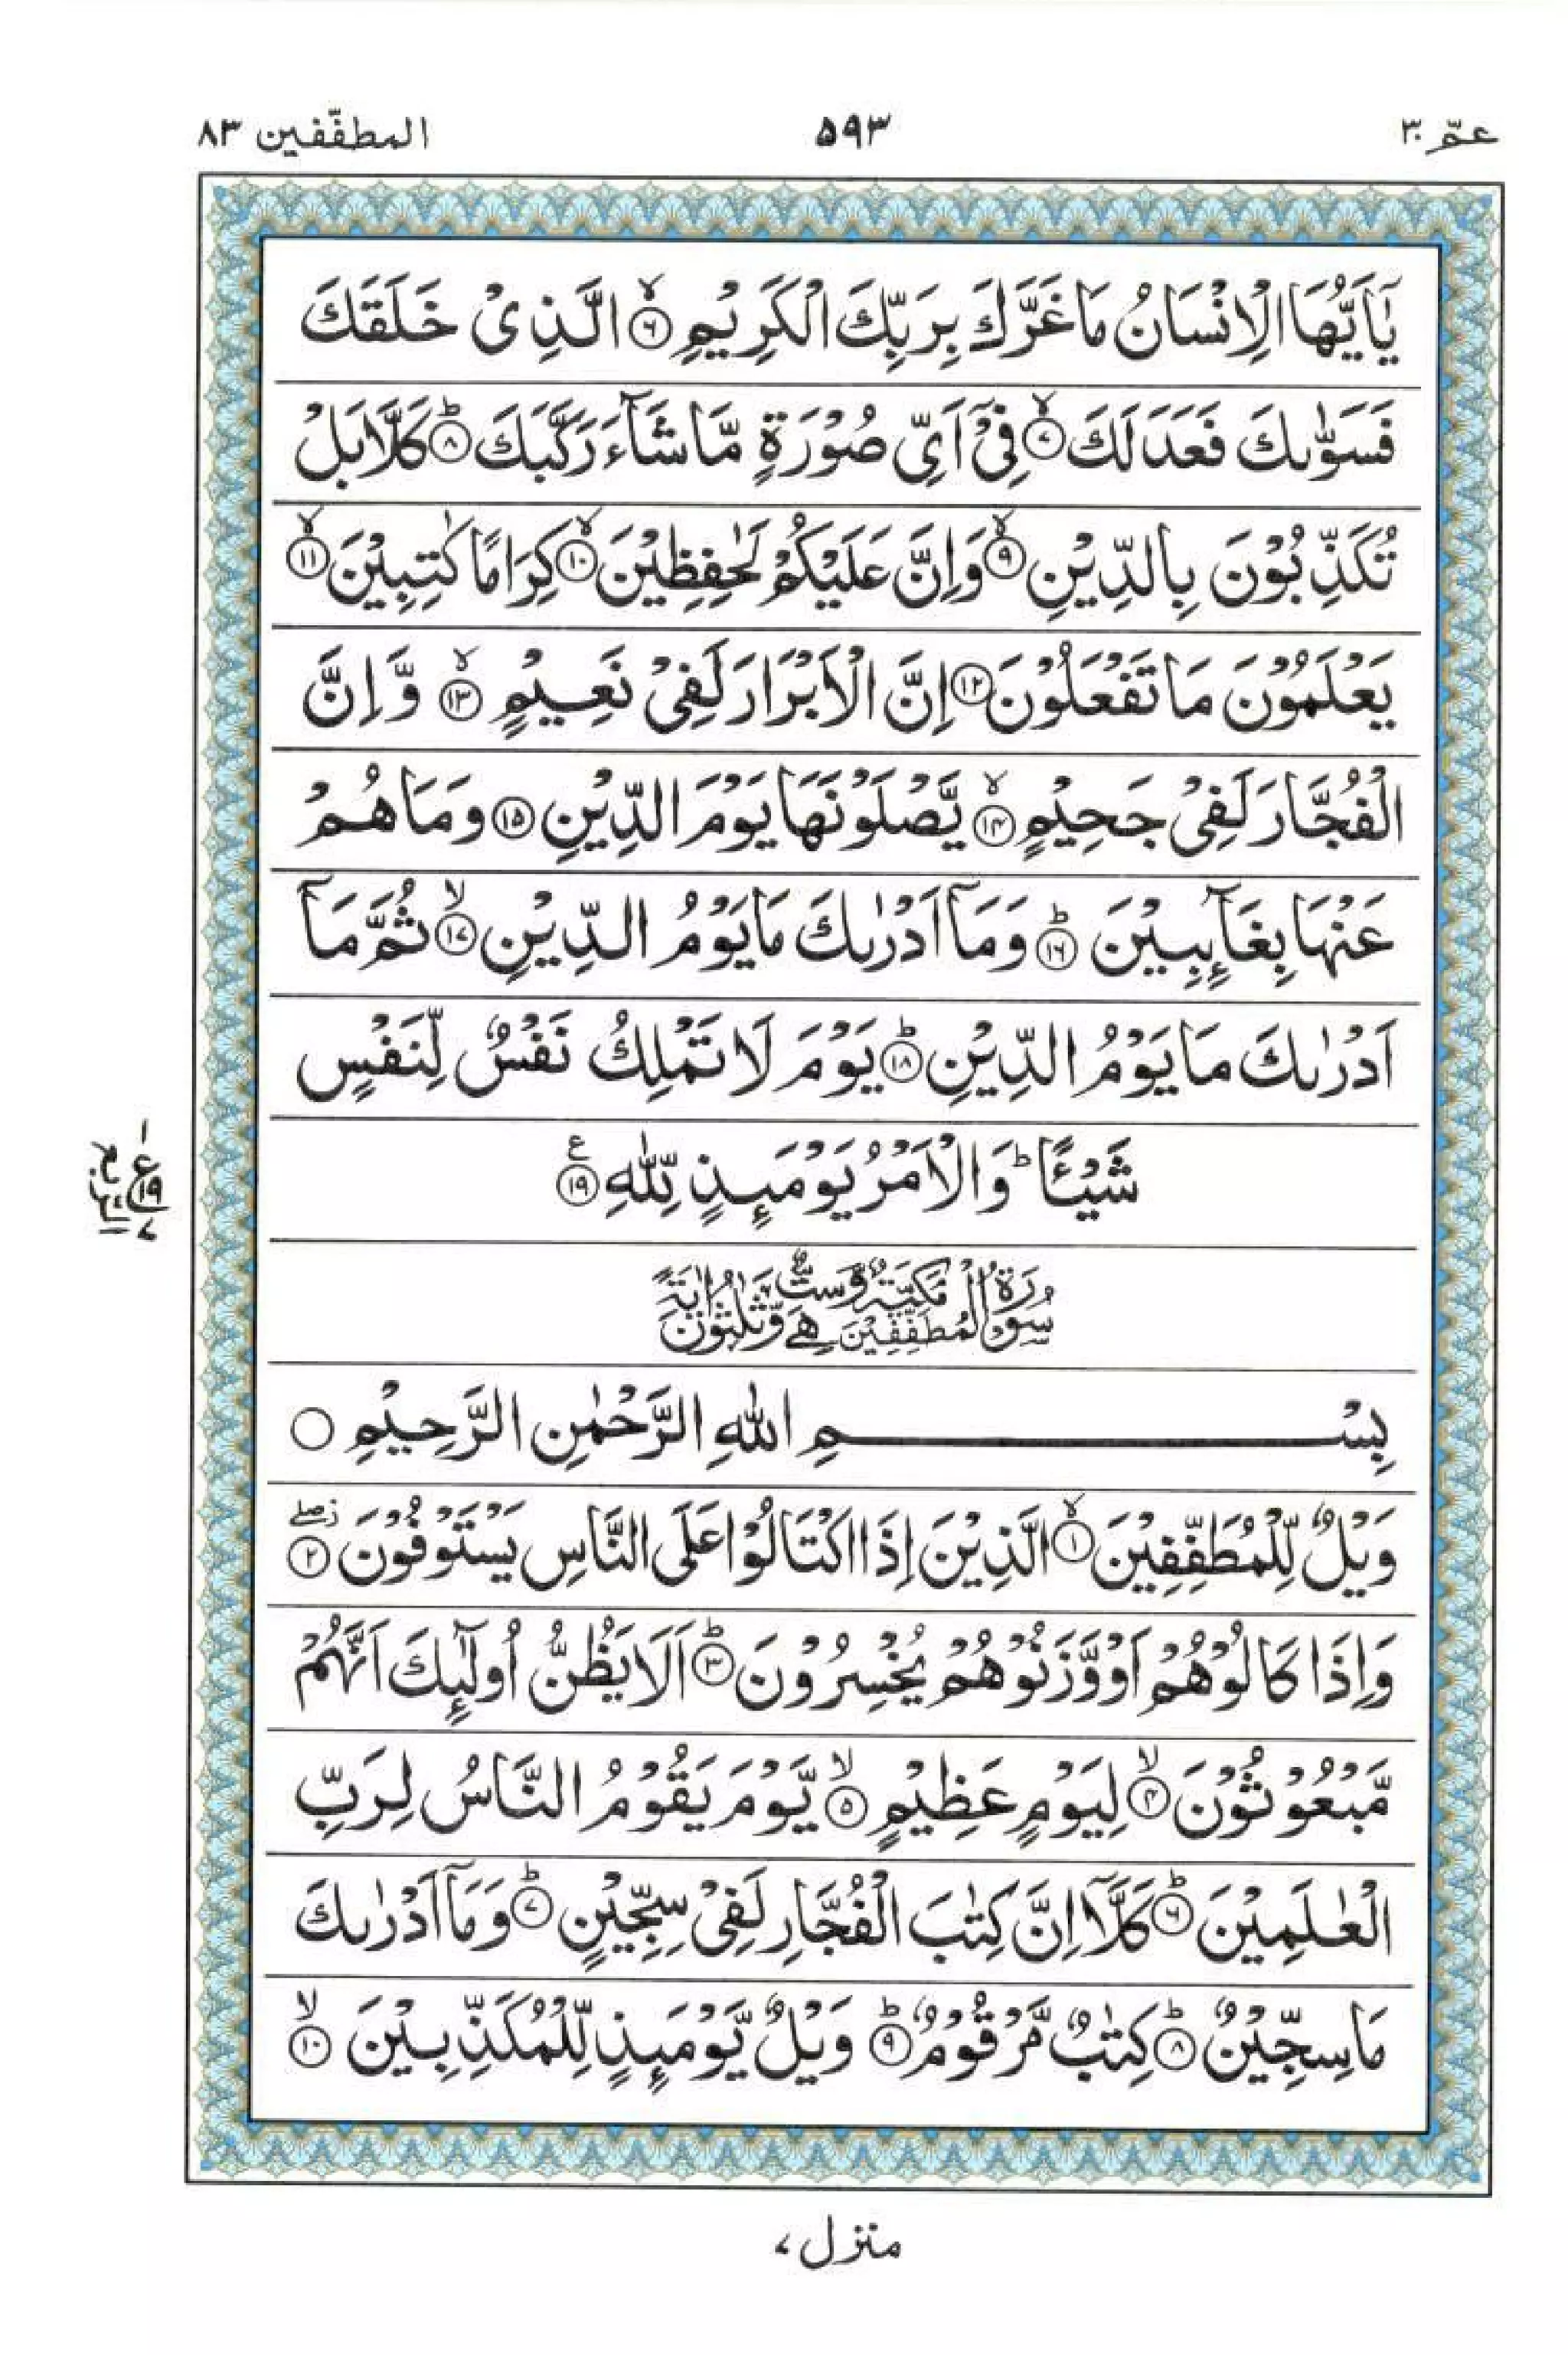 عمّ ٣٠
٥٩٣
المطفّفين ٨٣
يٰۤاَيُّهَا الْاِنْسَانُ مَا غَرَّكَ بِرَبِّكَ الْكَرِيْمِ ۙ‏﴿۶﴾ الَّذِىْ خَلَقَكَ
فَسَوّٰٮكَ فَعَدَلَكَ ۙ‏﴿۷﴾ فِىْۤ اَىِّ صُوْرَةٍ مَّا شَآءَ رَكَّبَكَ ؕ‏﴿۸﴾ كَلَّا بَلْ
تُكَذِّبُوْنَ بِالدِّيْنِ ۙ‏﴿۹﴾ وَاِنَّ عَلَيْكُمْ لَحٰفِظِيْنَ ۙ‏﴿۱۰﴾ كِرَامًا كٰتِبِيْنَ ۙ‏﴿۱۱﴾
يَعْلَمُوْنَ مَا تَفْعَلُوْنَ ‏﴿۱۲﴾ اِنَّ الْاَبْرَارَ لَفِىْ نَعِيْمٍ ۙ‏﴿۱۳﴾ وَّاِنَّ
الْفُجَّارَ لَفِىْ جَحِيْمٍ ۙ‏﴿۱۴﴾ يَّصْلَوْنَهَا يَوْمَ الدِّيْنِ ‏﴿۱۵﴾ وَمَا هُمْ
عَنْهَا بِغَآٮِٕبِيْنَ ؕ‏﴿۱۶﴾ وَمَاۤ اَدْرٰٮكَ مَا يَوْمُ الدِّيْنِ ۙ‏﴿۱۷﴾ ثُمَّ مَاۤ
اَدْرٰٮكَ مَا يَوْمُ الدِّيْنِ ؕ‏﴿۱۸﴾ يَوْمَ لَا تَمْلِكُ نَفْسٌ لِّنَفْسٍ
شَيْـــًٔا ؕ وَالْاَمْرُ يَوْمَٮِٕذٍ لِّلّٰهِ ‏﴿۱۹﴾ ع
ع ١٩ ٧
الربع
سُوْرَةُ الْمُطَفِّفِيْنَ مَكِّيَّةٌ وَّهِىَ سِتٌّ وَّثَلٰثُوْنَ اٰيَةً
بِسْمِ اللهِ الرَّحْمٰنِ الرَّحِيْمِ ○
وَيْلٌ لِّلْمُطَفِّفِيْنَ ۙ‏﴿۱﴾ الَّذِيْنَ اِذَا اكْتَالُوْا عَلَى النَّاسِ يَسْتَوْفُوْنَ ۖ‏﴿۲﴾
وَاِذَا كَالُوْهُمْ اَوْ وَّزَنُوْهُمْ يُخْسِرُوْنَ ؕ‏﴿۳﴾ اَلَا يَظُنُّ اُولٰٓٮِٕكَ اَنَّهُمْ
مَّبْعُوْثُوْنَ ۙ‏﴿۴﴾ لِيَوْمٍ عَظِيْمٍ ۙ‏﴿۵﴾ يَّوْمَ يَقُوْمُ النَّاسُ لِرَبِّ
الْعٰلَمِيْنَ ؕ‏﴿۶﴾ كَلَّاۤ اِنَّ كِتٰبَ الْفُجَّارِ لَفِىْ سِجِّيْنٍ ؕ‏﴿۷﴾ وَمَاۤ اَدْرٰٮكَ
مَا سِجِّيْنٌ ؕ‏﴿۸﴾ كِتٰبٌ مَّرْقُوْمٌ ؕ‏﴿۹﴾ وَيْلٌ يَّوْمَٮِٕذٍ لِّلْمُكَذِّبِيْنَ ۙ‏﴿۱۰﴾
منزل ٧